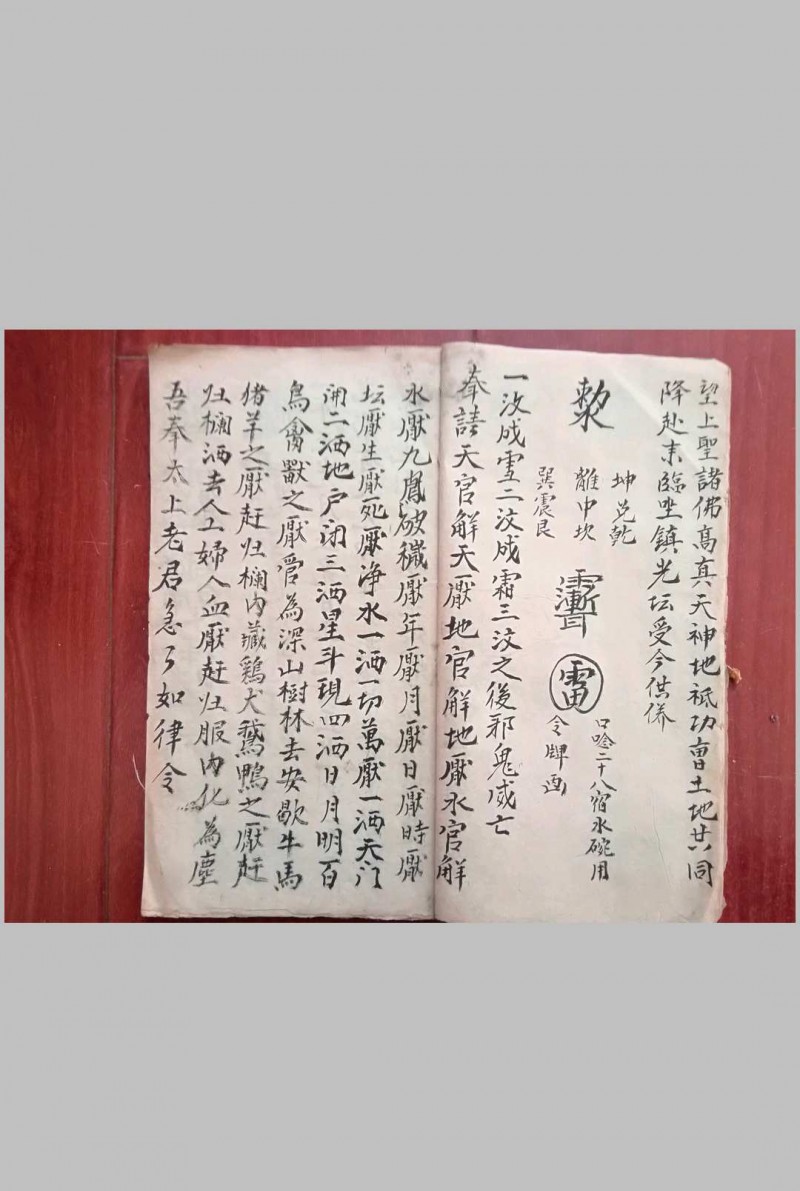 望上聖諸佛高真天神地祇功曹土地共同
降赴来臨坐鎮光坛受今供养
敕
坤兑乾
離中坎
巽震艮
雷
口唸二十八宿水碗用
令牌画
一汶成雪二汶成霜三汶之後邪鬼威亡
奉請天官解天厭地官解地厭水官解
水厭九鳳破穢厭年厭月厭日厭時厭
坛厭生厭死厭净水一洒一切萬厭一洒天门
開二洒地户闭三洒星斗現四洒日月明百
鳥禽獸之厭管為深山樹林去安歇牛馬
猪羊之厭赶归欄内藏鷄犬鵝鴨之厭赶
归欄洒去人工婦人血厭赶归服内化為塵
吾奉太上老君急々如律令